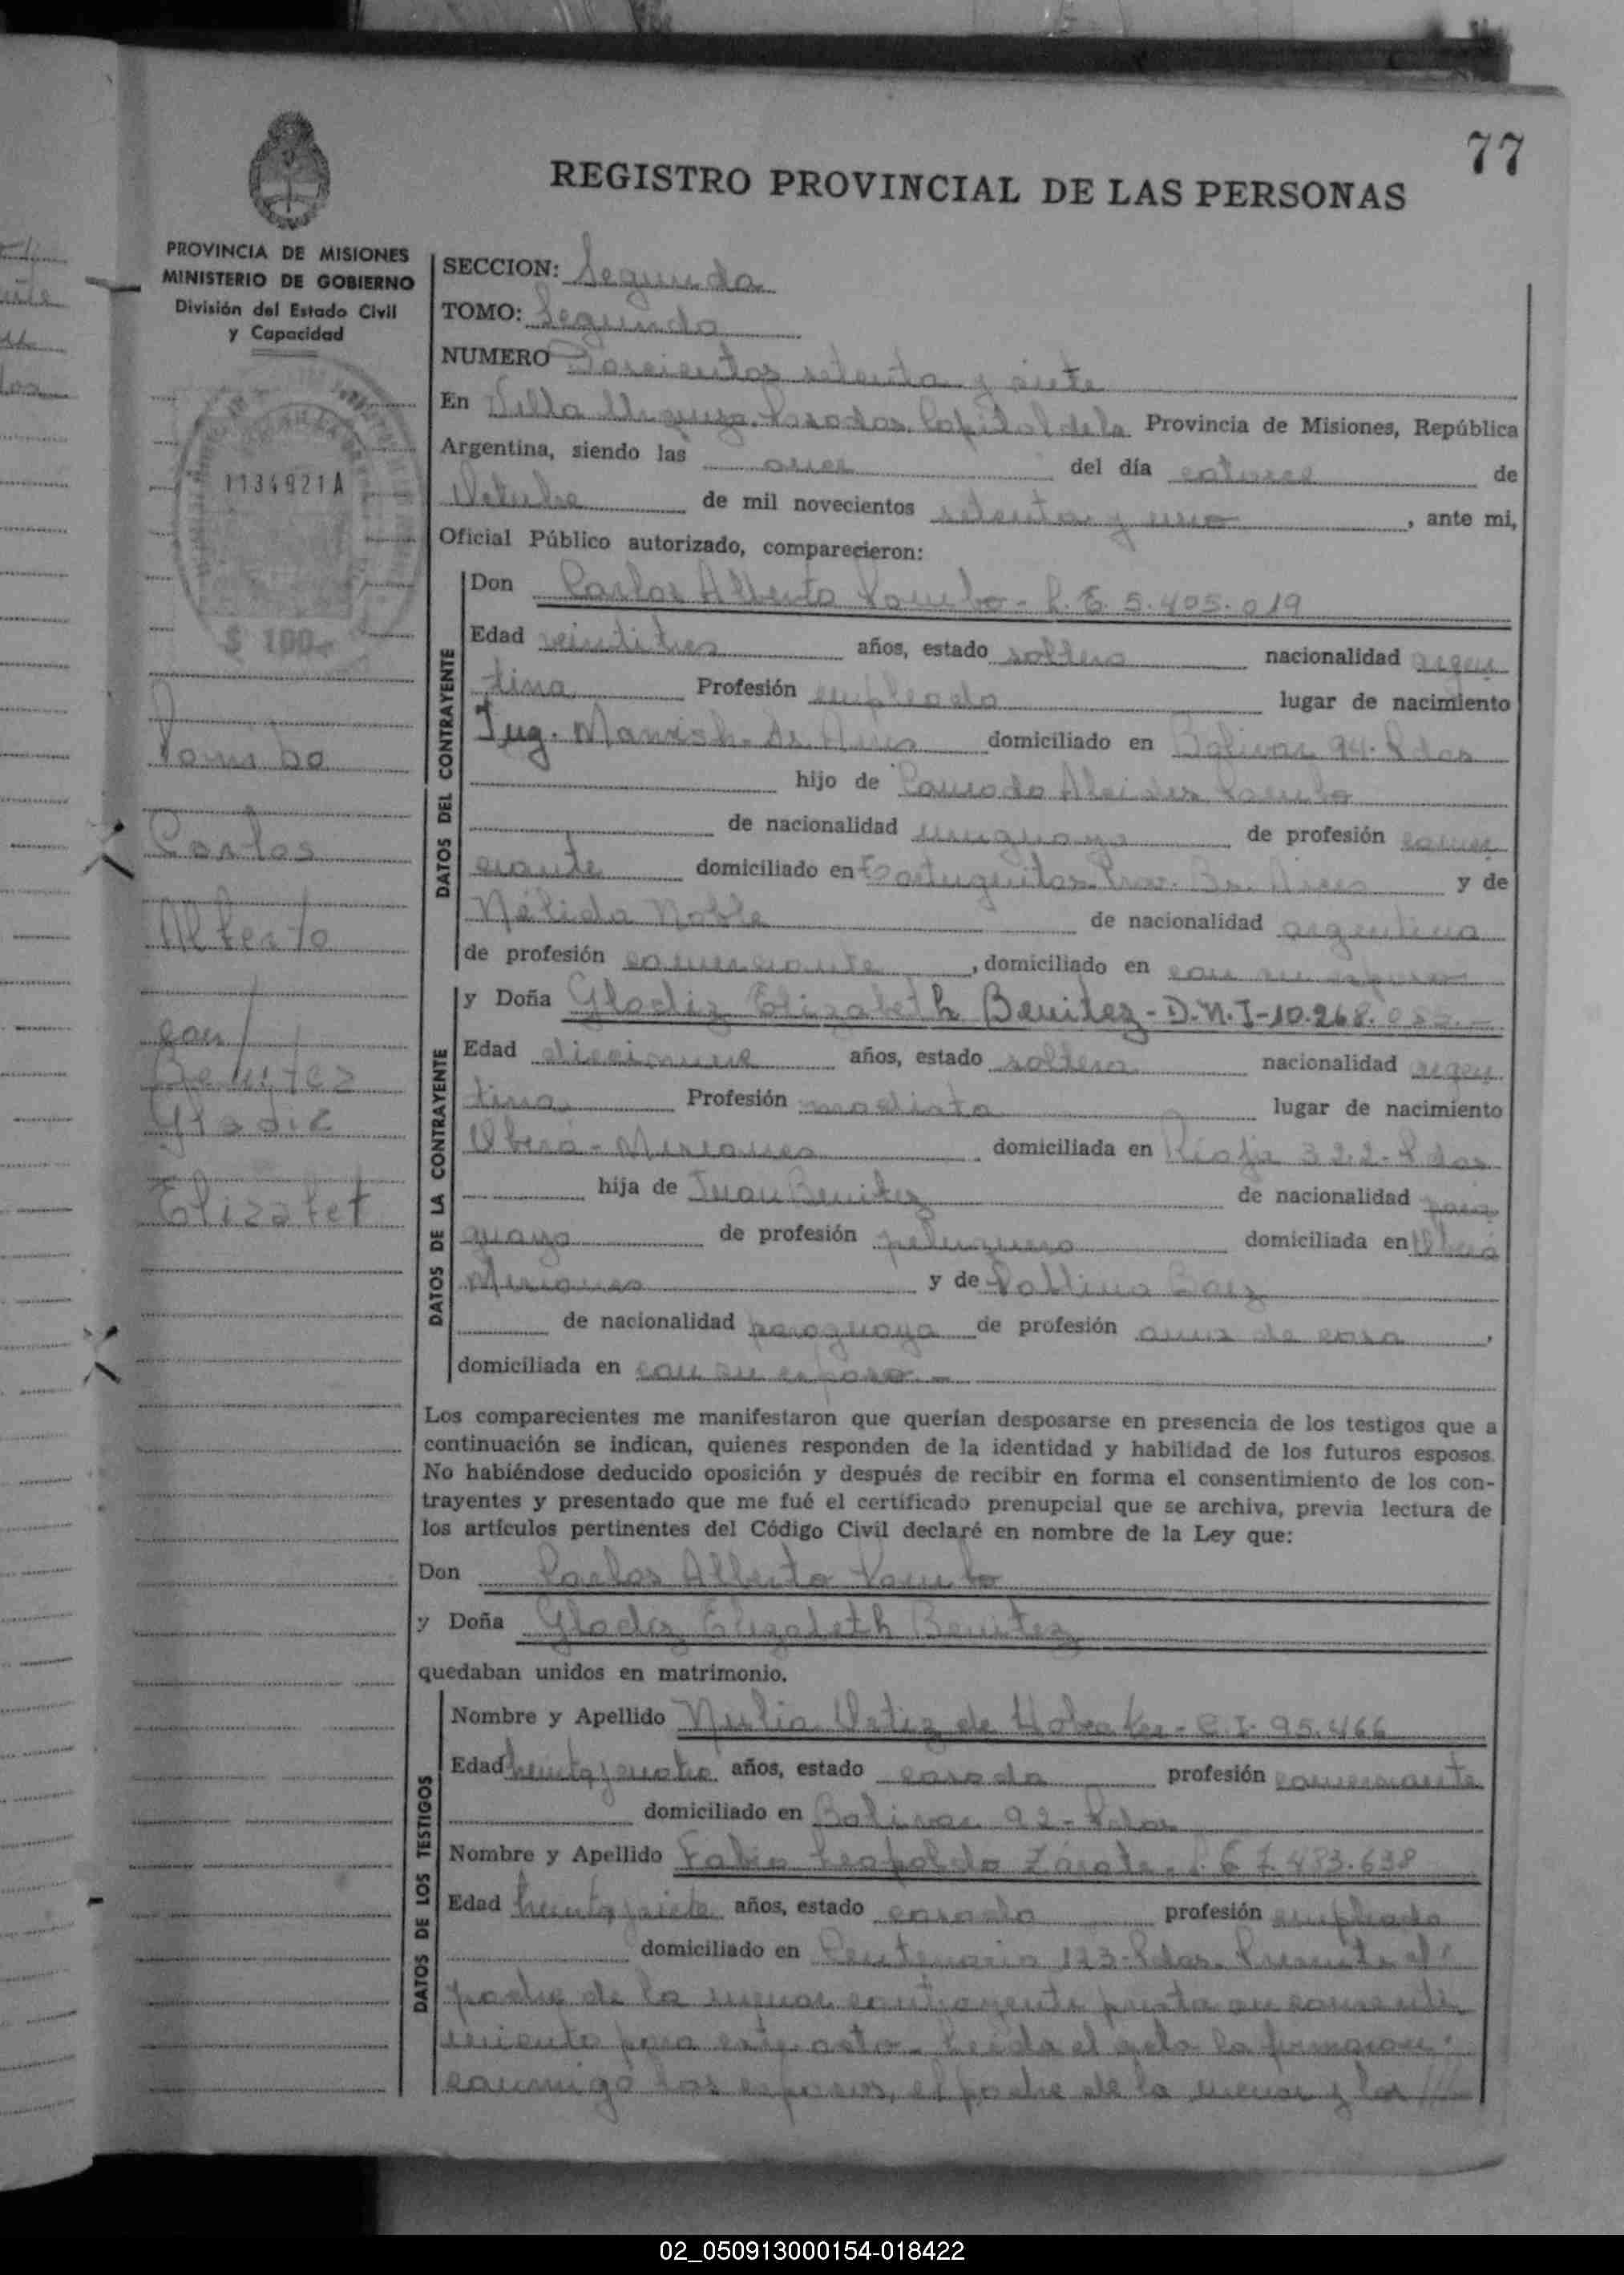 77
REGISTRO PROVINCIAL DE LAS PERSONAS
PROVINCIA DE MISIONES
MINISTERIO DE GOBIERNO
División del Estado Civil
y Capacidad
1134921A
$ 100.-
Pombo
Carlos
Alberto
con/
Benitez
Gladiz
Elizabet
SECCION: Segunda
TOMO: Segundo
NUMERO Doscientos setenta y siete
En Villa Urquiza, Posadas, Capital de la Provincia de Misiones, República
Argentina, siendo las once del día catorce de
Octubre de mil novecientos setenta y uno, ante mi,
Oficial Público autorizado, comparecieron:
DATOS DEL CONTRAYENTE
Don Carlos Alberto Pombo - L. E. 5.405.019
Edad veintitres años, estado soltero nacionalidad argen
tina Profesión empleado lugar de nacimiento
Ing. Maswish. Bs. Aires domiciliado en Bolivar 94. Pdas
hijo de Alcides Pombo
de nacionalidad uruguaya de profesión comer
ciante domiciliado en Tortuguitas. Prov. Bs. Aires y de
Nélida Noble de nacionalidad argentina
de profesión comerciante, domiciliado en con su esposo
DATOS DE LA CONTRAYENTE
y Doña Gladiz Elizabeth Benitez - D.N.I - 10.268.
Edad diecinueve años, estado soltera nacionalidad argen
tina Profesión modista lugar de nacimiento
Oberá - Misiones domiciliada en Rioja 322 - Pdas
hija de Juan Benitez de nacionalidad para
guaya de profesión peluquero domiciliada en Oberá
Misiones y de Baez
de nacionalidad paraguaya de profesión ama de casa,
domiciliada en con su esposo. -
Los comparecientes me manifestaron que querían desposarse en presencia de los testigos que a
continuación se indican, quienes responden de la identidad y habilidad de los futuros esposos.
No habiéndose deducido oposición y después de recibir en forma el consentimiento de los con-
trayentes y presentado que me fué el certificado prenupcial que se archiva, previa lectura de
los artículos pertinentes del Código Civil declaré en nombre de la Ley que:
Don Carlos Alberto Pombo
y Doña Gladiz Elizabeth Benitez
quedaban unidos en matrimonio.
DATOS DE LOS TESTIGOS
Nombre y Apellido Ortiz de - C. I. 95.466
Edad treinta y cuatro años, estado casada profesión comerciante
domiciliado en Bolivar 92 - Pdas
Nombre y Apellido Fabio Leopoldo Zárate - L. E 7.483.638
Edad treinta y siete años, estado casado profesión empleado
domiciliado en Centenario 123 - Pdas. Presente el
padre de la menor contrayente presta su consenti
miento para este acto. Leida el acta la firmaron
conmigo los esposos, el padre de la menor y los
02_050913000154-018422